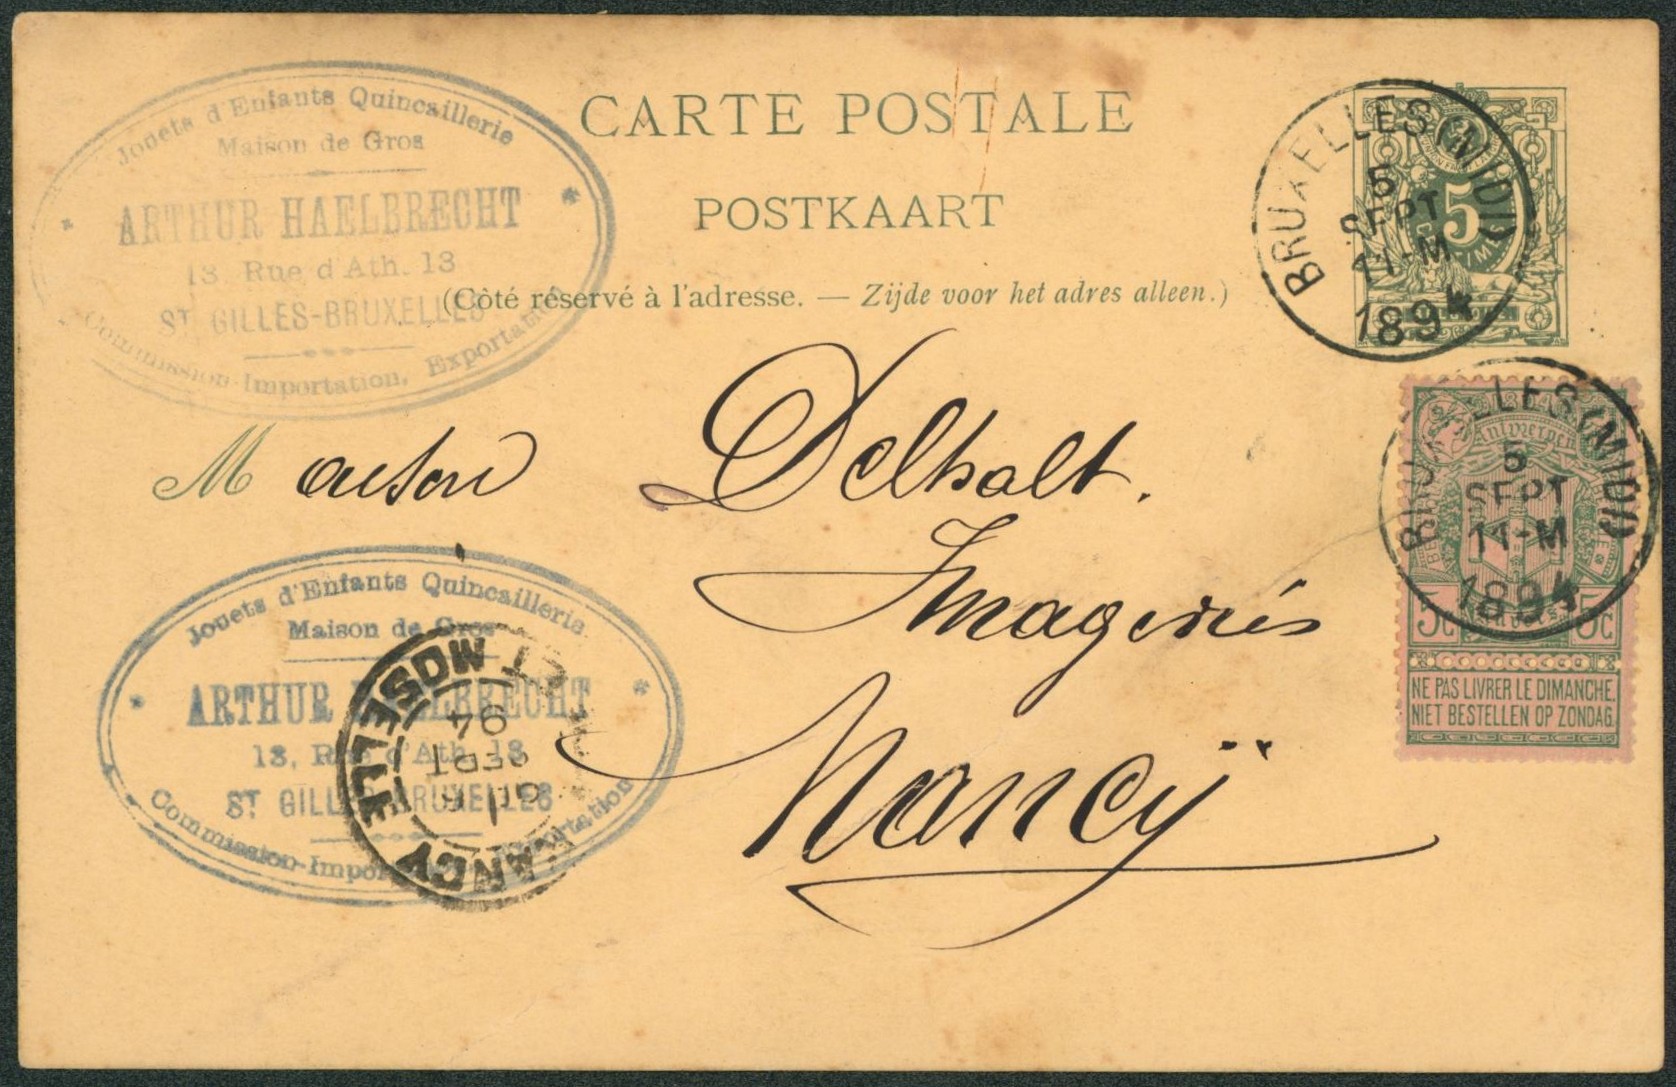 CARTE POSTALE
POSTKAART
(Côté réservé à l'adresse. — Zijde voor het adres alleen.)
Jouets d'Enfants Quincaillerie
Maison de Gros
ARTHUR HAELBRECHT
13 Rue d'Ath. 13
ST GILLES-BRUXELLES
Commission-Importation, Exportation
BRUXELLES (MIDI)
5
SEPT
11-M
1894
5
BRUXELLES (MIDI)
5
SEPT
11-M
1894
Antwerpen
5c 5c
NE PAS LIVRER LE DIMANCHE,
NIET BESTELLEN OP ZONDAG.
M aison Delhalt.
Imageries
Nancy
Jouets d'Enfants Quincaillerie
Maison de Gros
ARTHUR HAELBRECHT
13, Rue d'Ath. 13
ST GILLES-BRUXELLES
Commission-Importation, Exportation
NANCY
6
SEPT
94